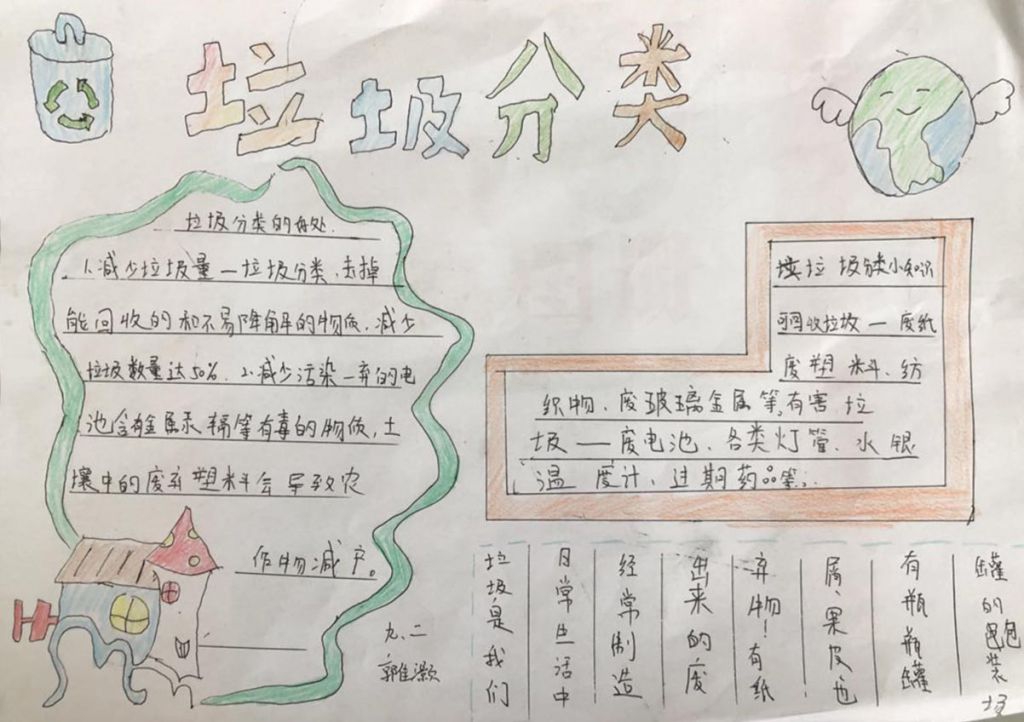 垃圾分类
垃圾分类的好处
1.减少垃圾量一垃圾分类,去掉
能回收的和不易降解的物质,减少
垃圾数量达50%.2.减少污染一弃的电
池含有金属汞镉等有毒的物质,土
壤中的废弃塑料会导致农
作物减产。
九、二
垃圾分类小知识
可回收垃圾一废纸
废塑料、纺
织物、废玻璃金属等,有害垃
圾一一废电池、各类灯管、水银
温度计、过期药品等;
垃圾是我们
日常生活中
经常制造
出来的废
弃物!有纸
屑、果皮也
有瓶瓶罐
罐的包装